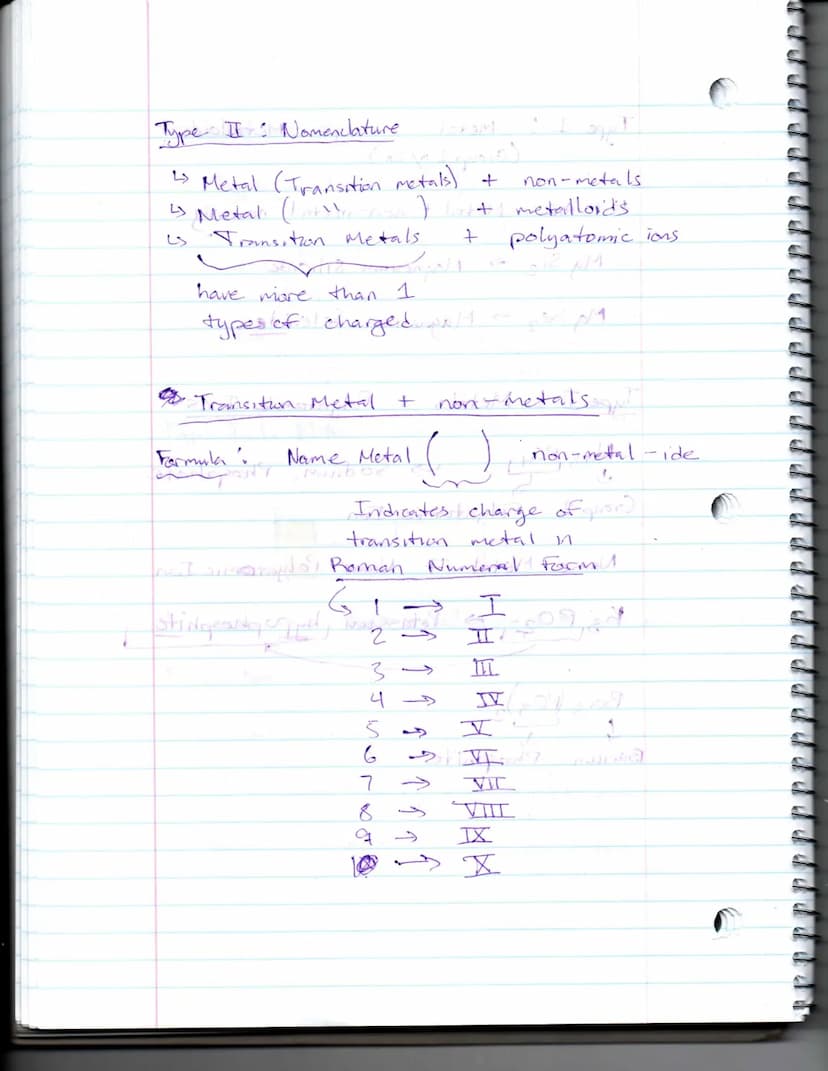 Type II : Nomenclature
↳ Metal (Transition metals) + non-metals
↳ Metal ( " ) + metalloids
↳ Transition Metals + polyatomic ions
have more than 1
types of charged
Transition Metal + non-metals
Formula : Name Metal ( ) non-metal -ide
Indicates charge of
transition metal in
Roman Numeral Form
↳ 1 → I
2 → II
3 → III
4 → IV
5 → V
6 → VI
7 → VII
8 → VIII
9 → IX
10 → X